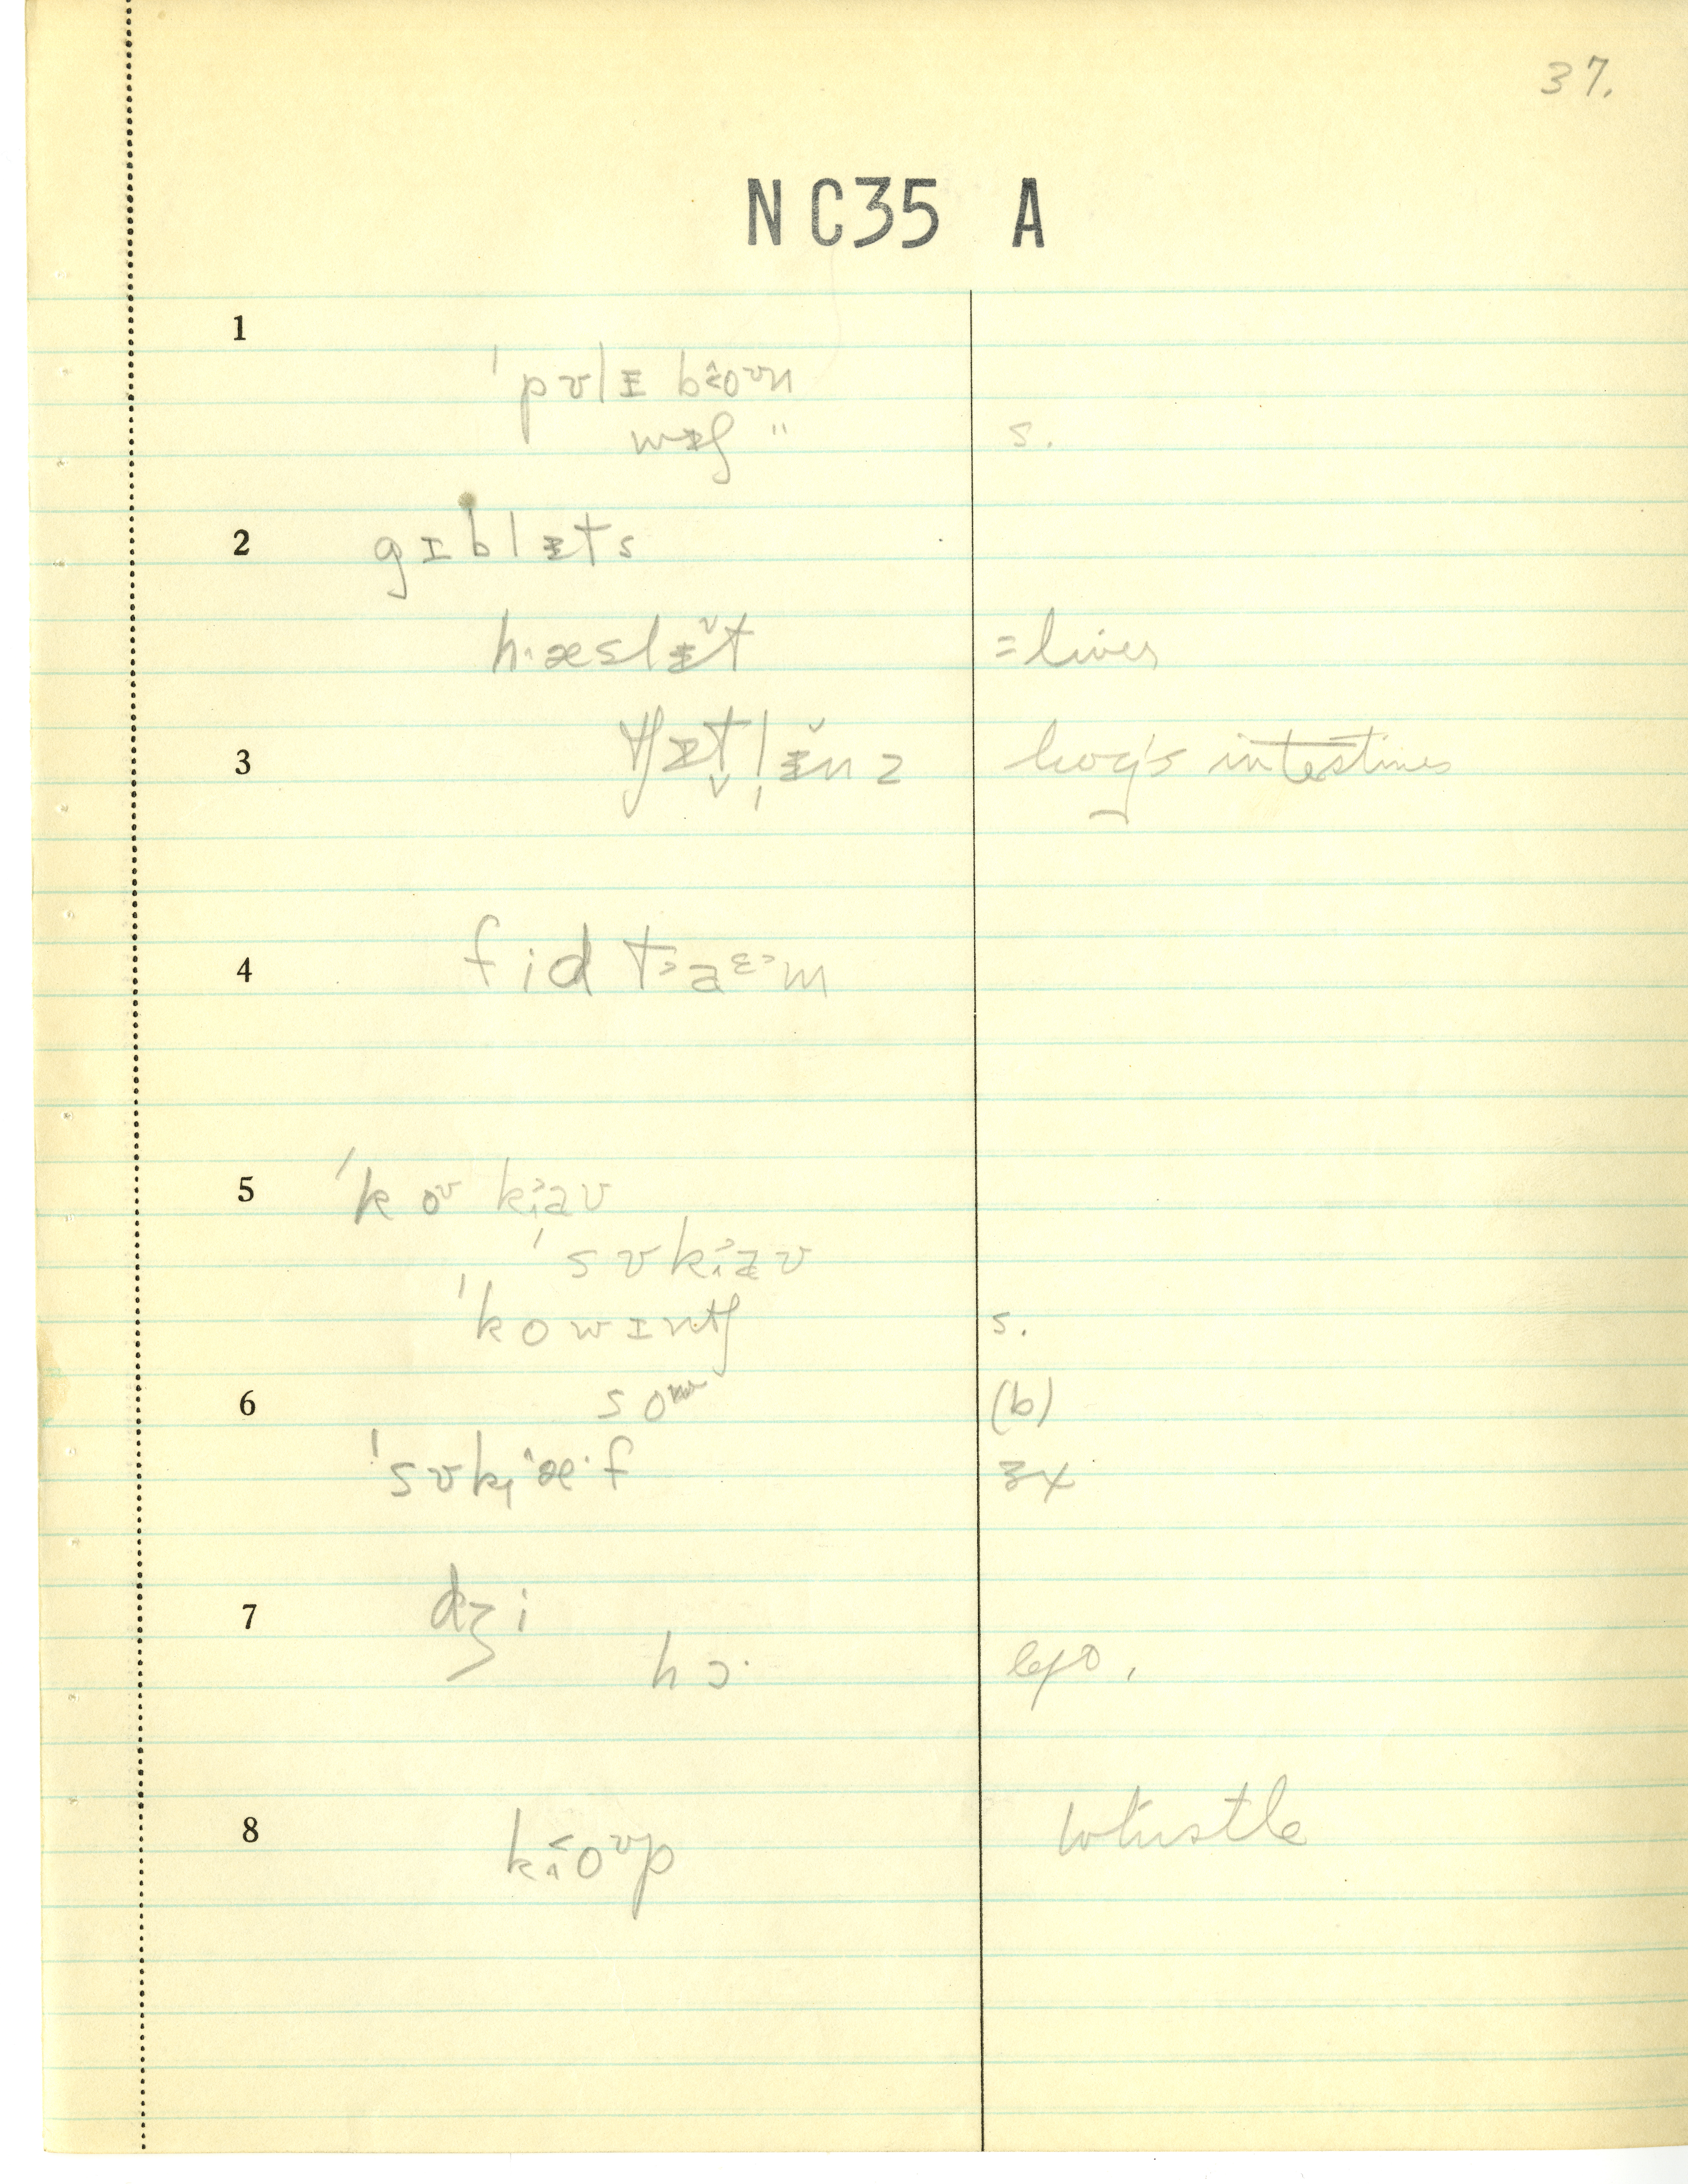 37.
NC35 A
1
ˈpʊlɪ boʊn
wɪʃ " s.
2 gɪblɪts
hæslɪt = liver
3 tʃɪtlɪnz hog's intestines
4 fid taɛm
5 ˈkoʊ kaʊ
ˈsʊkaʊ
ˈkowɪntʃ s.
6 (b)
ˈsʊkæˑf 3x
7 dʒi
hɔˑ
8 koʊp whistle